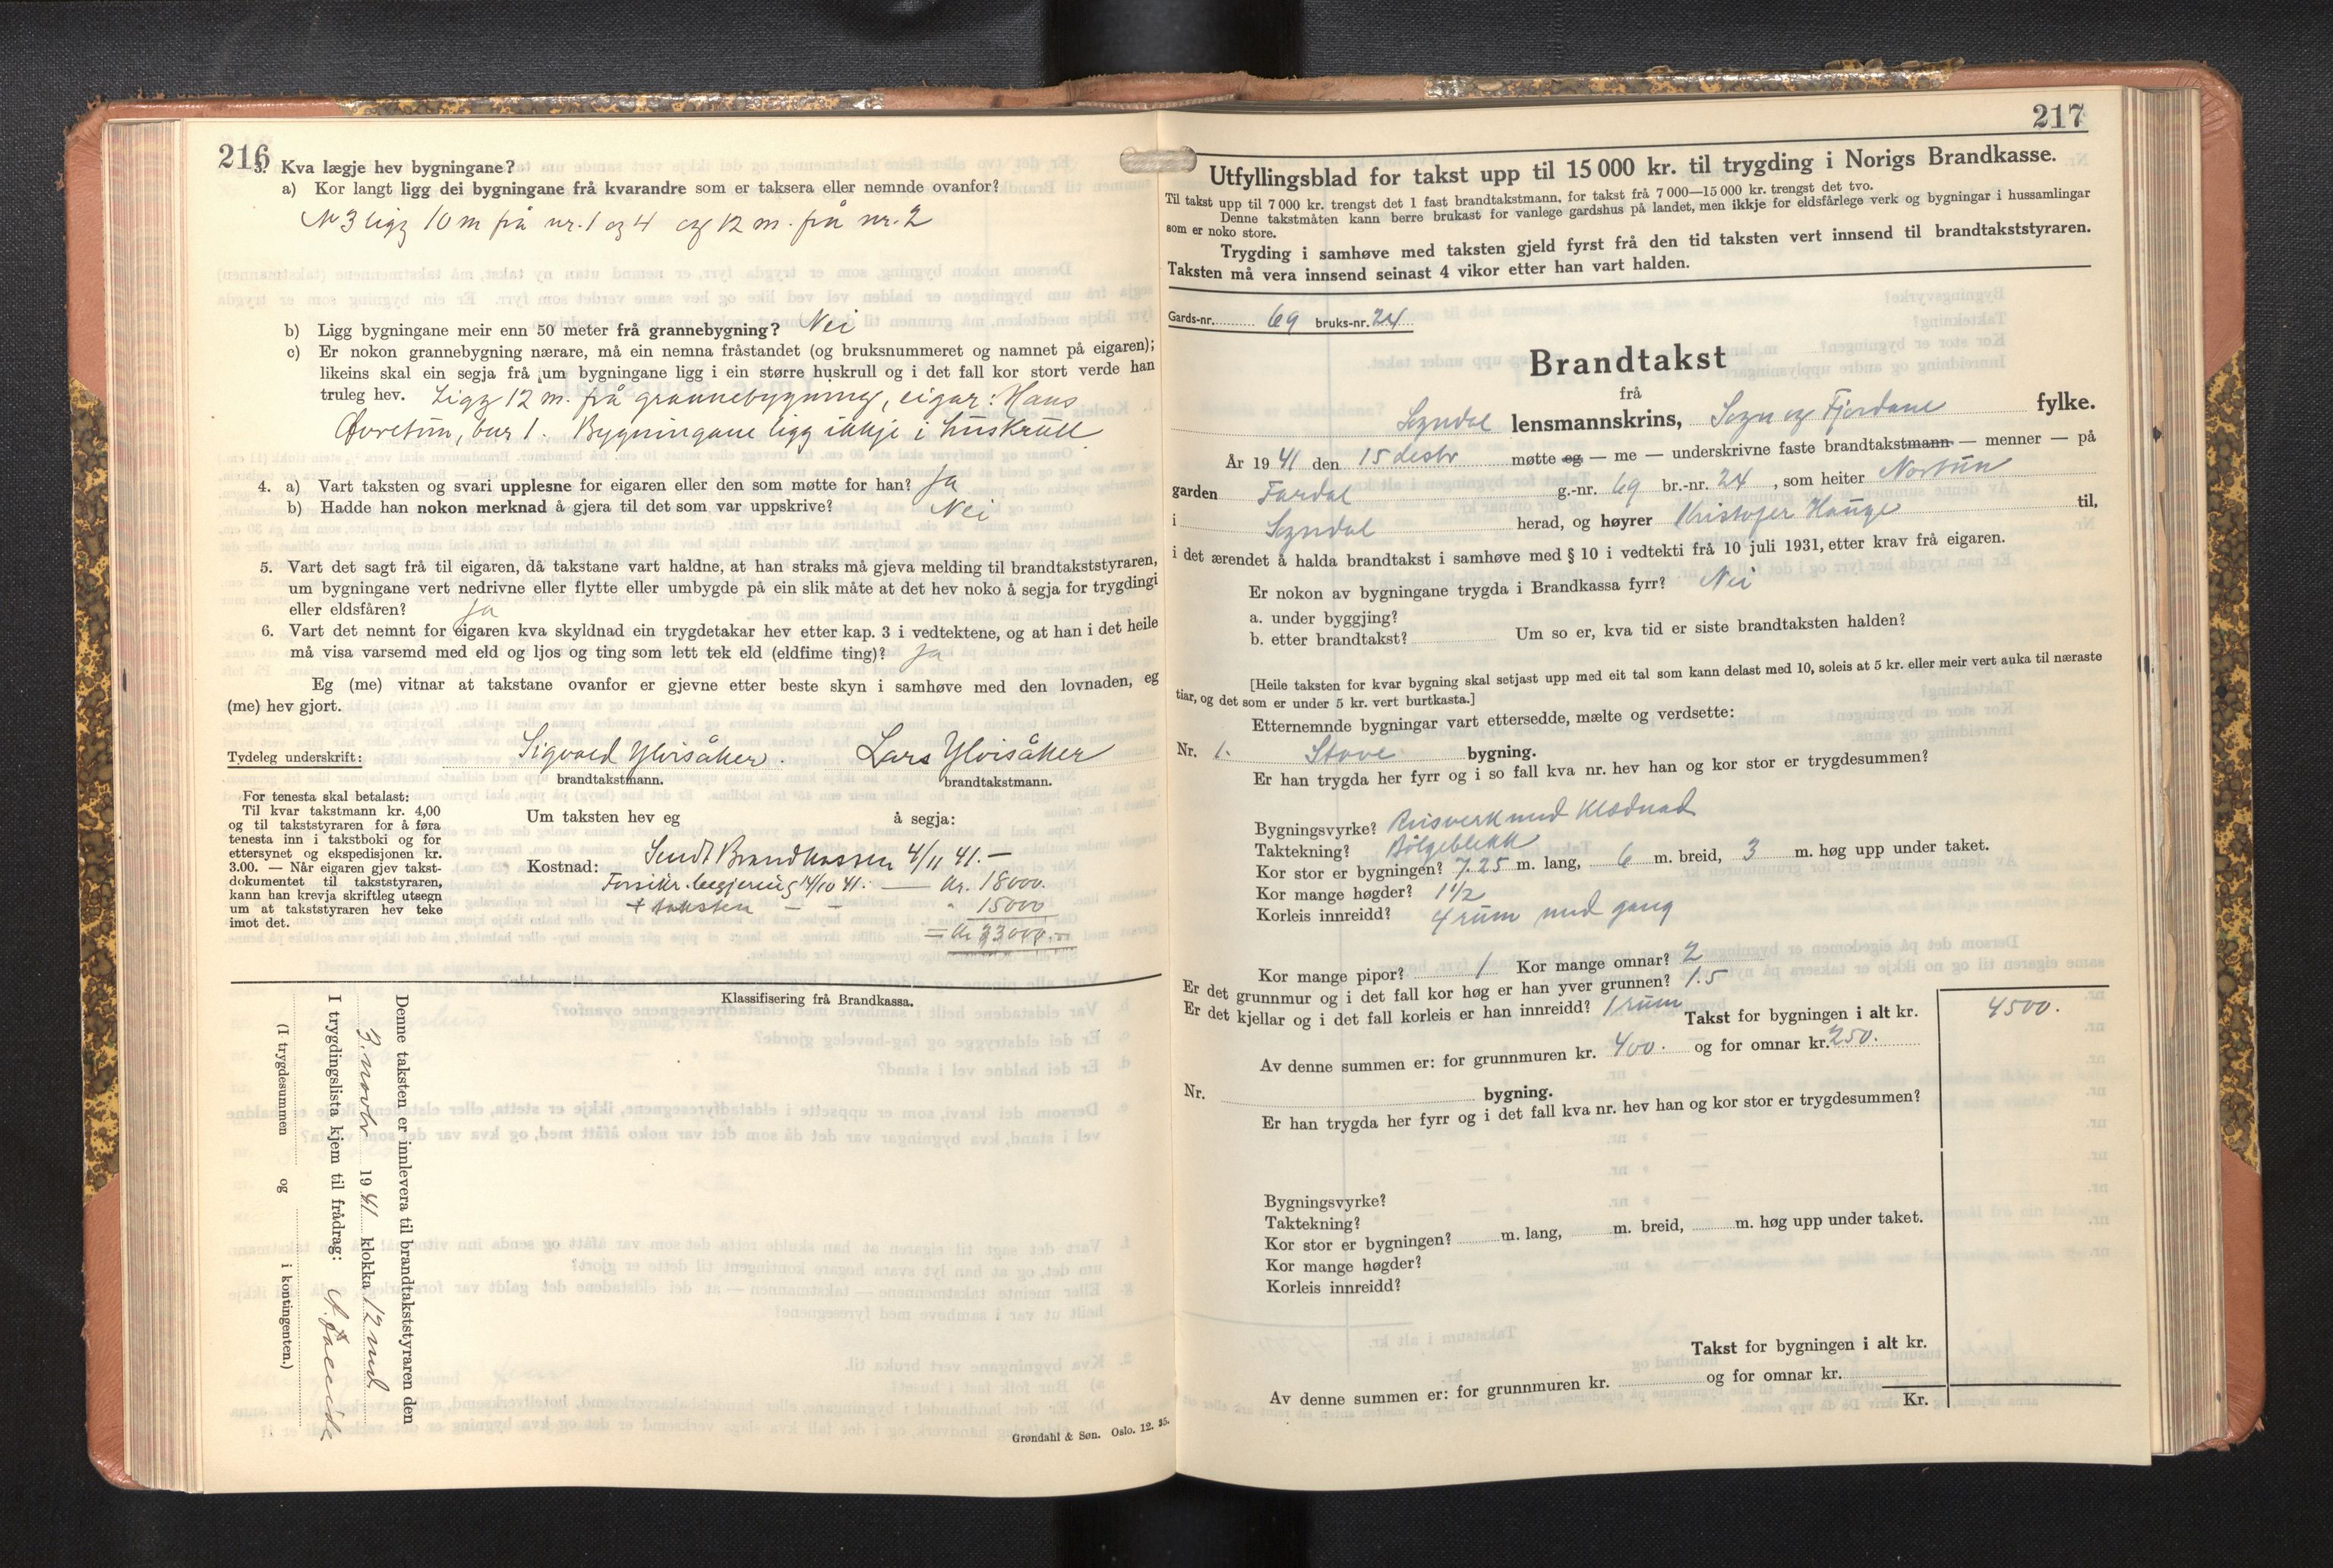 216
3. Kva lægje hev bygningane?
a) Kor langt ligg dei bygningane frå kvarandre som er taksera eller nemnde ovanfor?
Nr 3 ligg 10 m frå nr. 1 og 4 og 12 m. frå nr. 2
b) Ligg bygningane meir enn 50 meter frå grannebygning? Nei
c) Er nokon grannebygning nærare, må ein nemna fråstandet (og bruksnummeret og namnet på eigaren);
likeins skal ein segja frå um bygningane ligg i ein større huskrull og i det fall kor stort verde han
truleg hev. Ligg 12 m. frå grannebygning, eigar: Hans
Øvretun, bnr 1. Bygningane ligg ikkje i huskrull
4. a) Vart taksten og svari upplesne for eigaren eller den som møtte for han? Ja
b) Hadde han nokon merknad å gjera til det som var uppskrive? Nei
5. Vart det sagt frå til eigaren, då takstane vart haldne, at han straks må gjeva melding til brandtakststyraren,
um bygningane vert nedrivne eller flytte eller umbygde på ein slik måte at det hev noko å segja for trygdingi
eller eldsfåren? Ja
6. Vart det nemnt for eigaren kva skyldnad ein trygdetakar hev etter kap. 3 i vedtektene, og at han i det heile
må visa varsemd med eld og ljos og ting som lett tek eld (eldfime ting)? Ja
Eg (me) vitnar at takstane ovanfor er gjevne etter beste skyn i samhøve med den lovnaden, eg
(me) hev gjort.
Tydeleg underskrift: Sigvald Ylvisåker. Lars Ylvisåker
brandtakstmann. brandtakstmann.
For tenesta skal betalast:
Til kvar takstmann kr. 4,00
og til takststyraren for å føra
tenesta inn i takstboki og for
ettersynet og ekspedisjonen kr.
3.00. — Når eigaren gjev takst-
dokumentet til takststyraren,
kann han krevja skriftleg utsegn
um at takststyraren hev teke
imot det.
Um taksten hev eg å segja:
Sendt Brandkassen 4/11 41.—
Kostnad:
Forsikr. begjering 14/10 41. — Kr. 18000.
+ taksten — — " 15000
= Kr 33000.—
Klassifisering frå Brandkassa.
Denne taksten er innlevera til brandtakststyraren den
3. novbr 1941 klokka 12 md
I trygdingslista kjem til frådrag:
(I trygdesummen og i kontingenten.)
Grøndahl & Søn. Oslo. 12. 35.
217
Utfyllingsblad for takst upp til 15 000 kr. til trygding i Norigs Brandkasse.
Til takst upp til 7 000 kr. trengst det 1 fast brandtakstmann, for takst frå 7 000—15 000 kr. trengst det tvo.
Denne takstmåten kann berre brukast for vanlege gardshus på landet, men ikkje for eldsfårlege verk og bygningar i hussamlingar
som er noko store.
Trygding i samhøve med taksten gjeld fyrst frå den tid taksten vert innsend til brandtakststyraren.
Taksten må vera innsend seinast 4 vikor etter han vart halden.
Gards-nr. 69 bruks-nr. 24
Brandtakst
frå
Sogndal lensmannskrins, Sogn og Fjordane fylke.
År 1941 den 15 desbr møtte eg — me — underskrivne faste brandtakstmann — menner — på
garden Fardal g.-nr. 69 br.-nr. 24, som heiter Nortun
i Sogndal herad, og høyrer Kristofer Hauge til,
i det ærendet å halda brandtakst i samhøve med § 10 i vedtekti frå 10 juli 1931, etter krav frå eigaren.
Er nokon av bygningane trygda i Brandkassa fyrr? Nei
a. under byggjing?
b. etter brandtakst? Um so er, kva tid er siste brandtaksten halden?
[Heile taksten for kvar bygning skal setjast upp med eit tal som kann delast med 10, soleis at 5 kr. eller meir vert auka til næraste
tiar, og det som er under 5 kr. vert burtkasta.]
Etternemnde bygningar vart ettersedde, mælte og verdsette:
Nr. 1. Stove bygning.
Er han trygda her fyrr og i so fall kva nr. hev han og kor stor er trygdesummen?
Bygningsvyrke? Reisverk med klædnad
Taktekning? Bølgeblekk
Kor stor er bygningen? 7.25 m. lang, 6 m. breid, 3 m. høg upp under taket.
Kor mange høgder? 1 1/2
Korleis innreidd? 4 rum med gang
Kor mange pipor? 1 Kor mange omnar? 2
Er det grunnmur og i det fall kor høg er han yver grunnen? 1.5
Er det kjellar og i det fall korleis er han innreidd? 1 rum
Takst for bygningen i alt kr. 4500.
Av denne summen er: for grunnmuren kr. 400. og for omnar kr. 250.
Nr. bygning.
Er han trygda her fyrr og i det fall kva nr. hev han og kor stor er trygdesummen?
Bygningsvyrke?
Taktekning?
Kor stor er bygningen? m. lang, m. breid, m. høg upp under taket.
Kor mange høgder?
Korleis innreidd?
Takst for bygningen i alt kr.
Av denne summen er: for grunnmuren kr. og for omnar kr.
Kr.